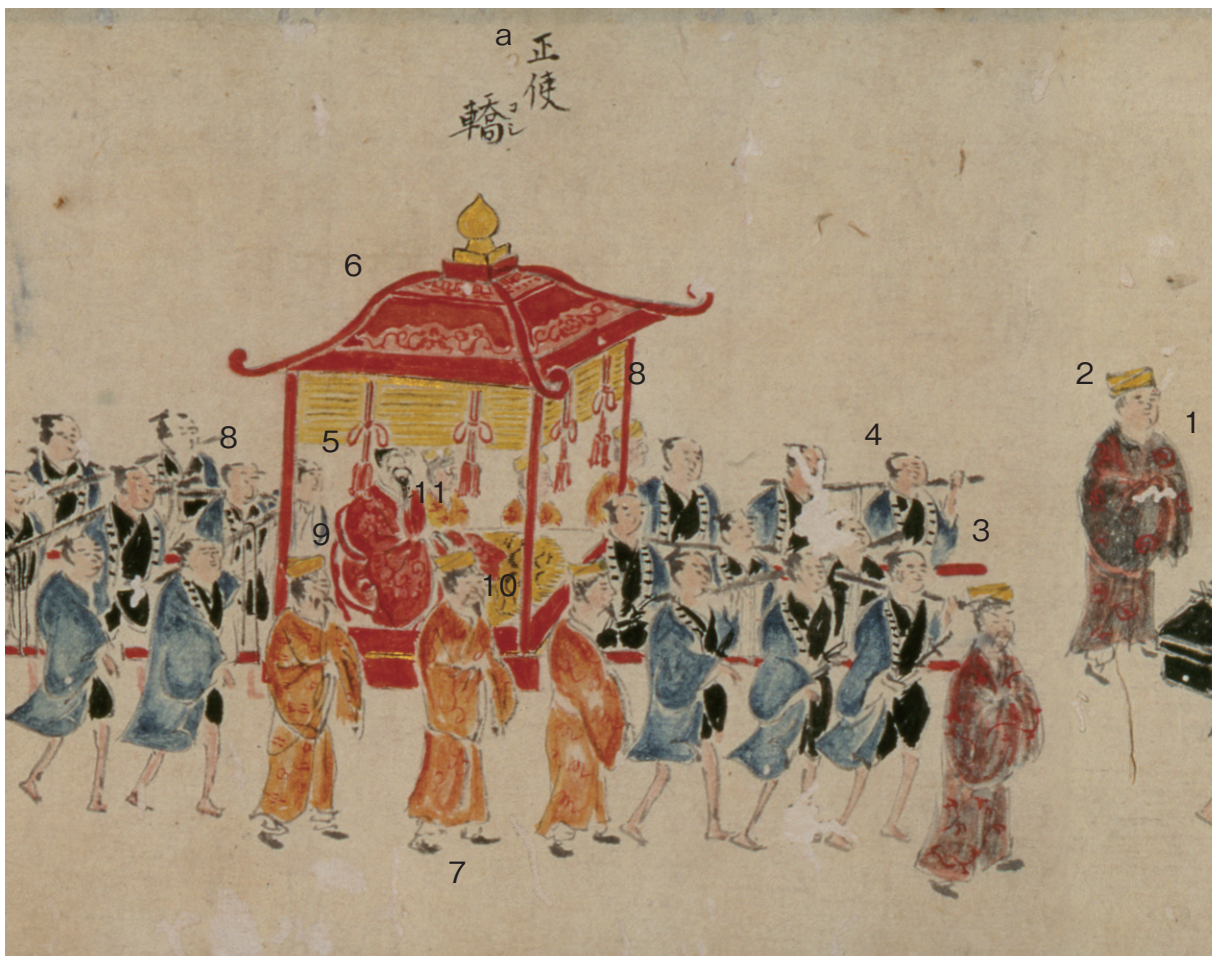 a
正使
轎
コシ
6
8
2
1
8
5
4
11
9
3
10
7